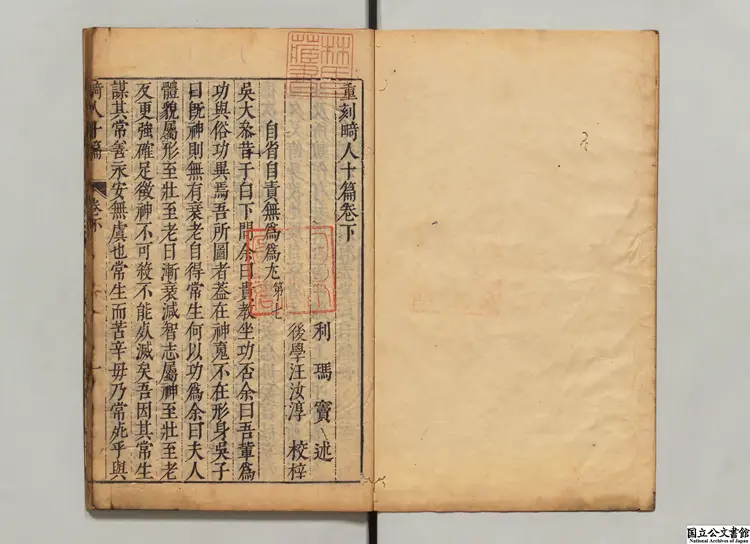 重刻畸人十篇卷下
利瑪竇述
後學汪汝淳校梓
自省自責無爲爲尤第七
吳大叅昔于白下問余曰貴教坐功否余曰吾輩爲
功與俗功異焉吾所圖者葢在神䰟不在形身吳子
曰旣神則無有衰老自得常生何以功爲余曰夫人
體貌屬形至壯至老日漸衰減智志屬神至壯至老
反更強確足徵神不可殺不能𣦸滅矣吾因其常生
謀其常善永安無虞也常生而苦辛毋乃常𣦸乎與
畸人十篇
卷下
一
林氏藏書
国立公文書館
National Archives of Japan